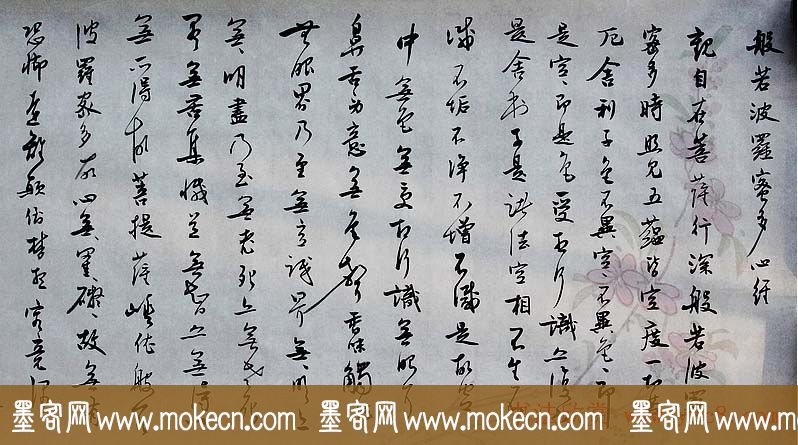 般若波羅蜜多心經
觀自在菩薩行深般若波羅
蜜多時照見五蘊皆空度一切
厄舍利子色不異空、不異色、即
是空、即是色受想行識亦復
是舍利子是諸法空相不生不
滅不垢不淨不增不減是故空
中無色無受想行識無眼耳
鼻舌身意無色聲香味觸
無眼界乃至無意識界無、明亦
無、明盡乃至無老死亦無老死
盡無苦集滅道無智亦無得
無所得故菩提薩埵依般若
波羅蜜多故心無罣礙、、故無有
恐怖遠離顛倒夢想究竟涅
墨客网 www.mokecn.com 墨客网 www.mokecn.com 墨客网 www.mokecn.com